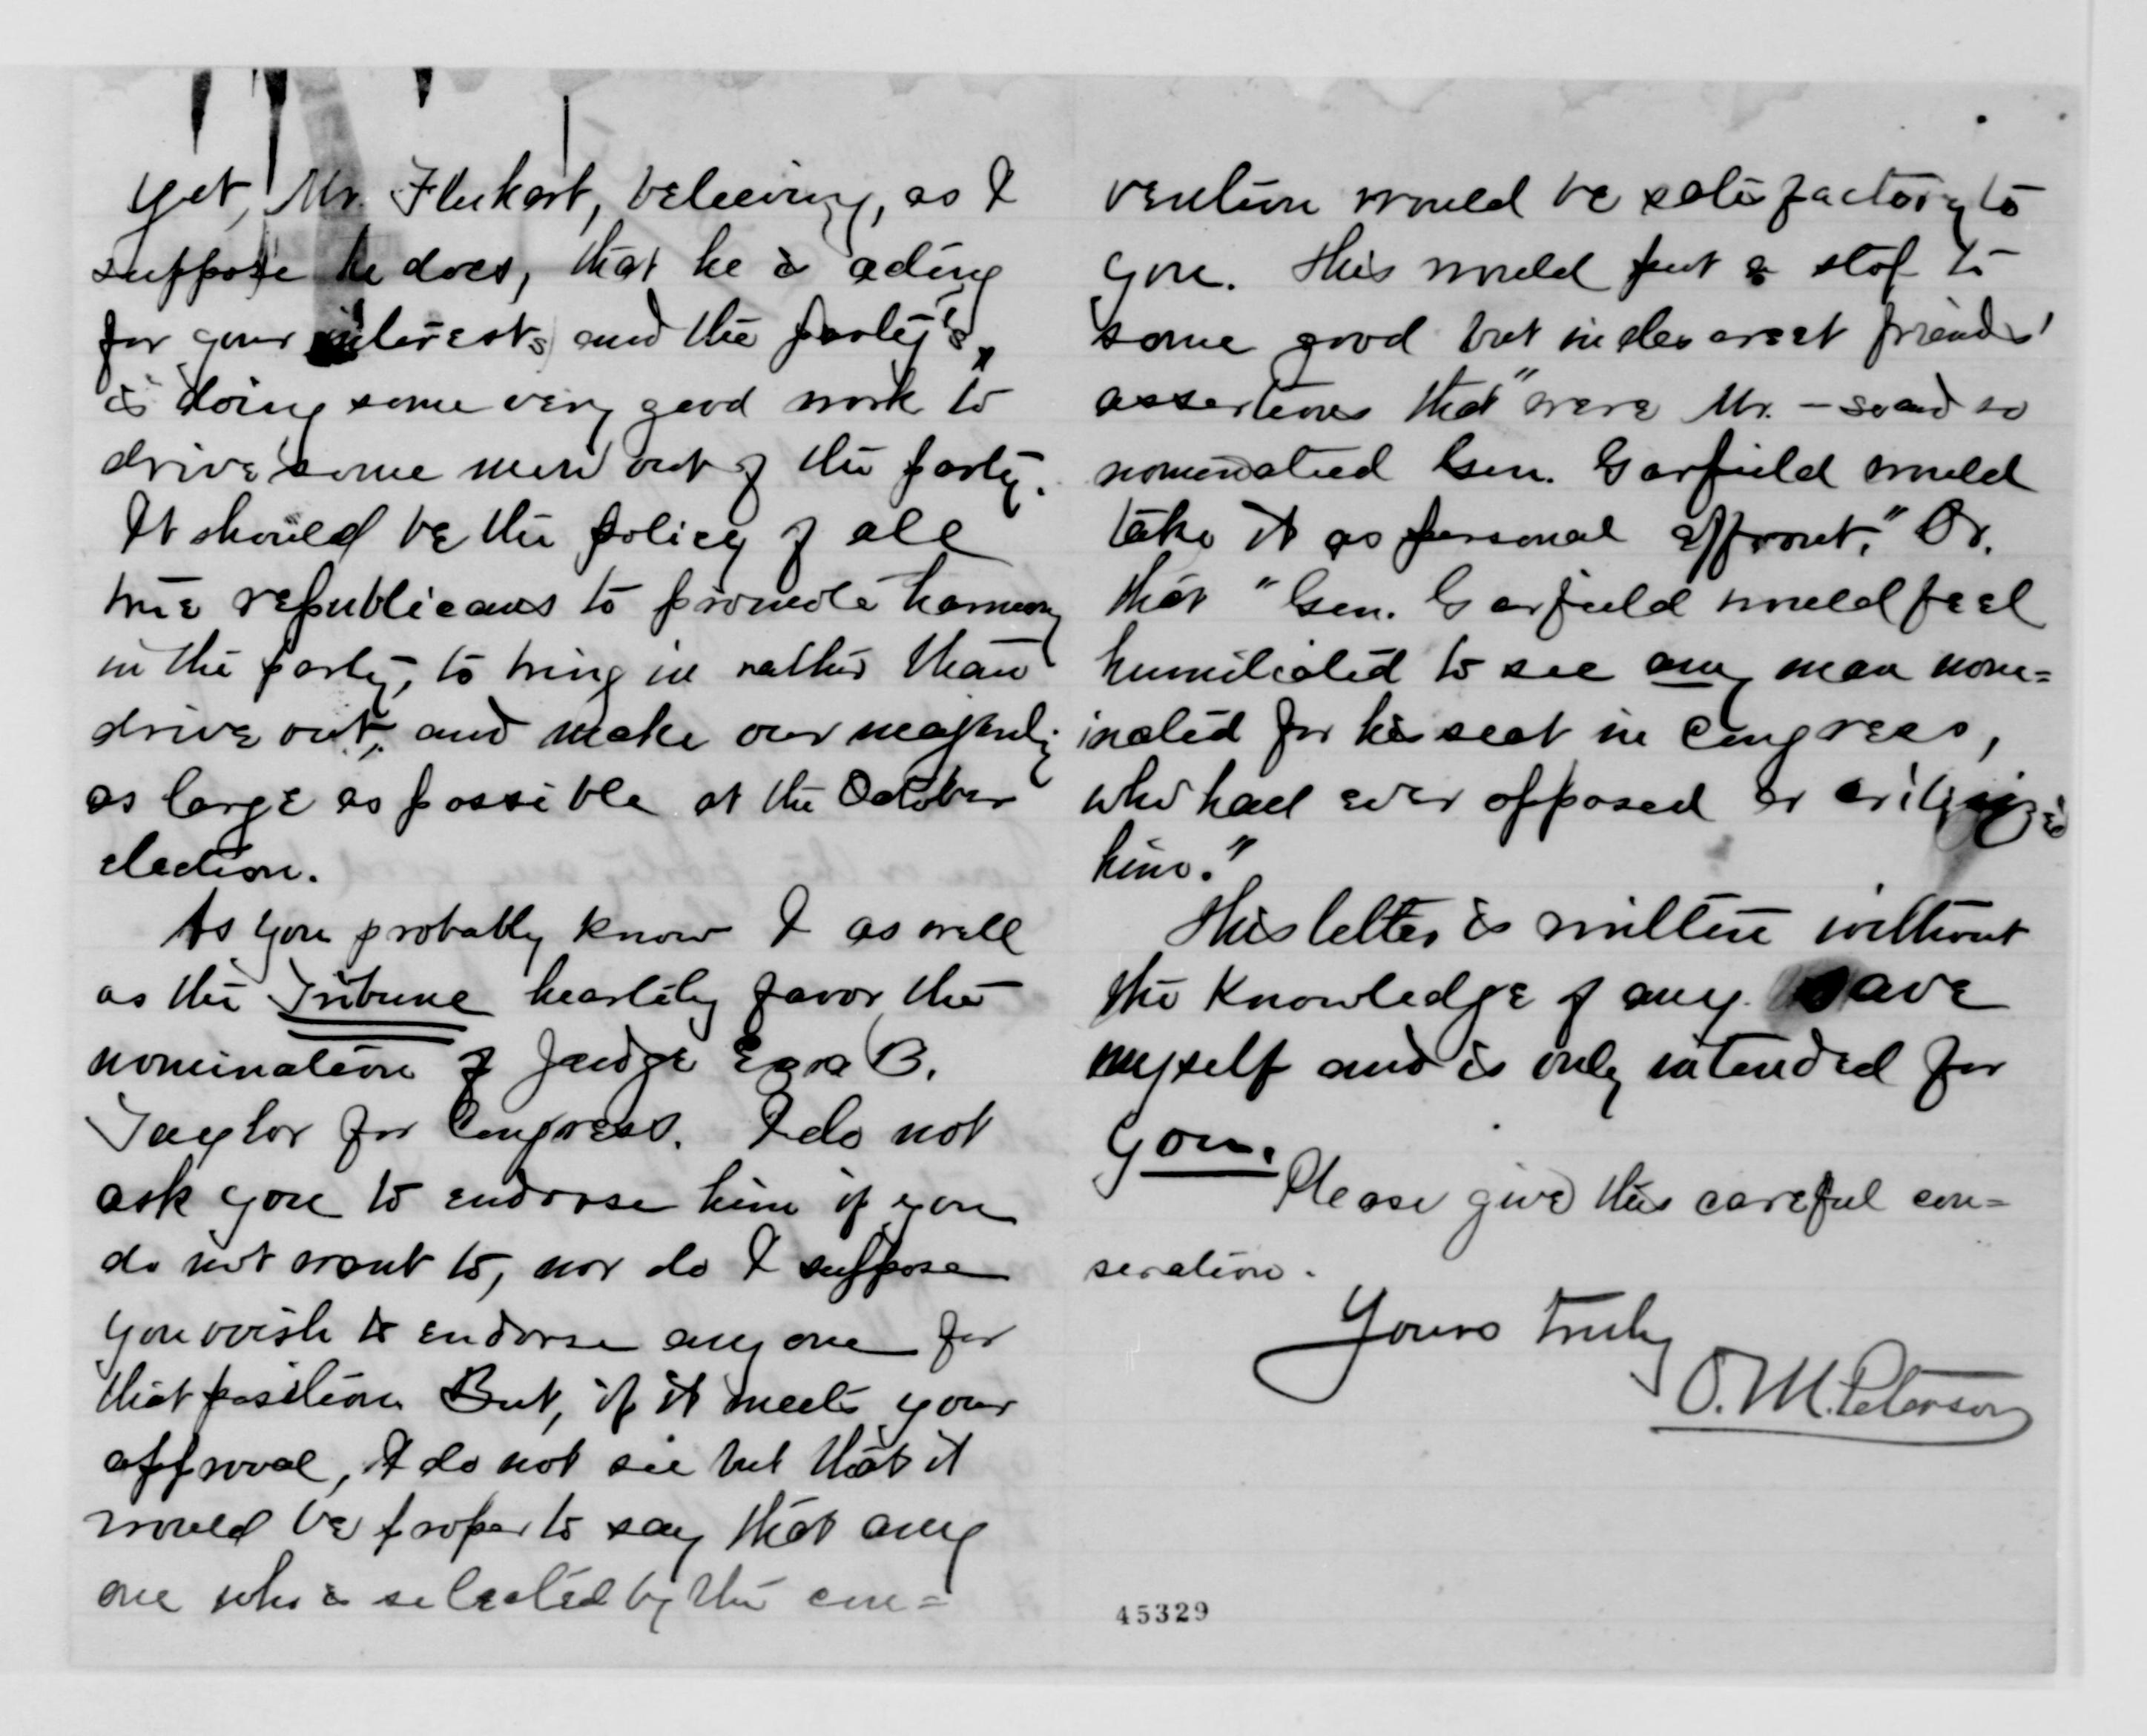 yet, Mr. Flickart, beleeving, as I
suppose he does, that he is acting
for your interests and the party's,
is doing some very good work to
drive some men out of the party.
It should be the policy of all
true republicans to promote harmony
in the party, to bring in rather than
drive out, and make our majority
as large as possible at the October
election.
As you probably know I as well
as the Tribune heartily favor the
nomination of Judge Ezra B.
Taylor for Congress. I do not
ask you to endorse him if you
do not want to, nor do I suppose
you wish to endorse any one for
that position. But, if it meets your
approval, I do not see but that it
would be proper to say that any
one who is selected by the con=
vention would be satisfactory to
you. This would put a stop to
some good but indescreet friends'
assertions that "were Mr. — so and so
nominated Gen. Garfield would
take it as personal affront." Or,
that "Gen. Garfield would feel
humiliated to see any man nom=
inated for his seat in Congress,
who had ever opposed or criticized
him."
This letter is written without
the knowledge of any save
myself and is only intended for
you.
Please give this careful con=
seration.
Yours truly
O. M. Peterson
45329